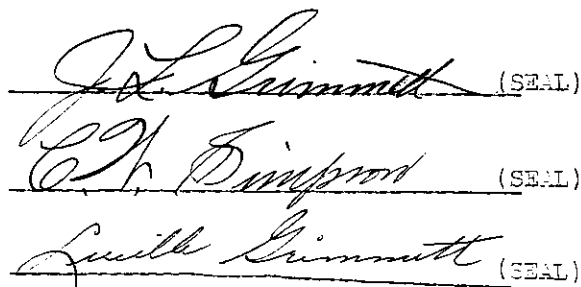 J. L. Grimmett (SEAL)
C. W. Simpson (SEAL)
Lucille Grimmett (SEAL)